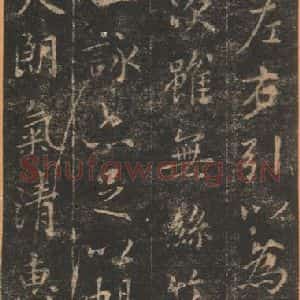 左右引以為
次雖無絲竹
一詠亦足以暢
天朗氣清惠
Shufawang.CN